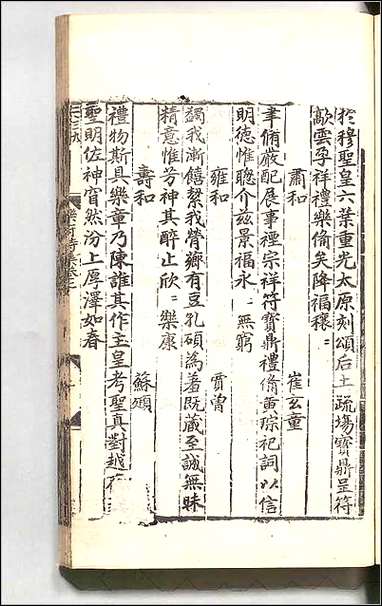 於穆聖皇六葉重光太原刻頌后土疏場寶鼎呈符
歊雲孕祥禮樂備矣降福穰〻
肅和 崔玄童
聿脩嚴配展事禋宗祥符寶鼎禮備黃琮祀詞以信
明德惟聰介兹景福永〻無窮
雍和 賈曾
蠲我漸饎絜我膋薌有豆孔碩為羞既蔵至誠無昧
精意惟芳神其醉止欣〻樂康
壽和 蘇頲
禮物斯具樂章乃陳誰其作主皇考聖真對越在
聖明佐神窅然汾上厚澤如春
樂府詩集卷